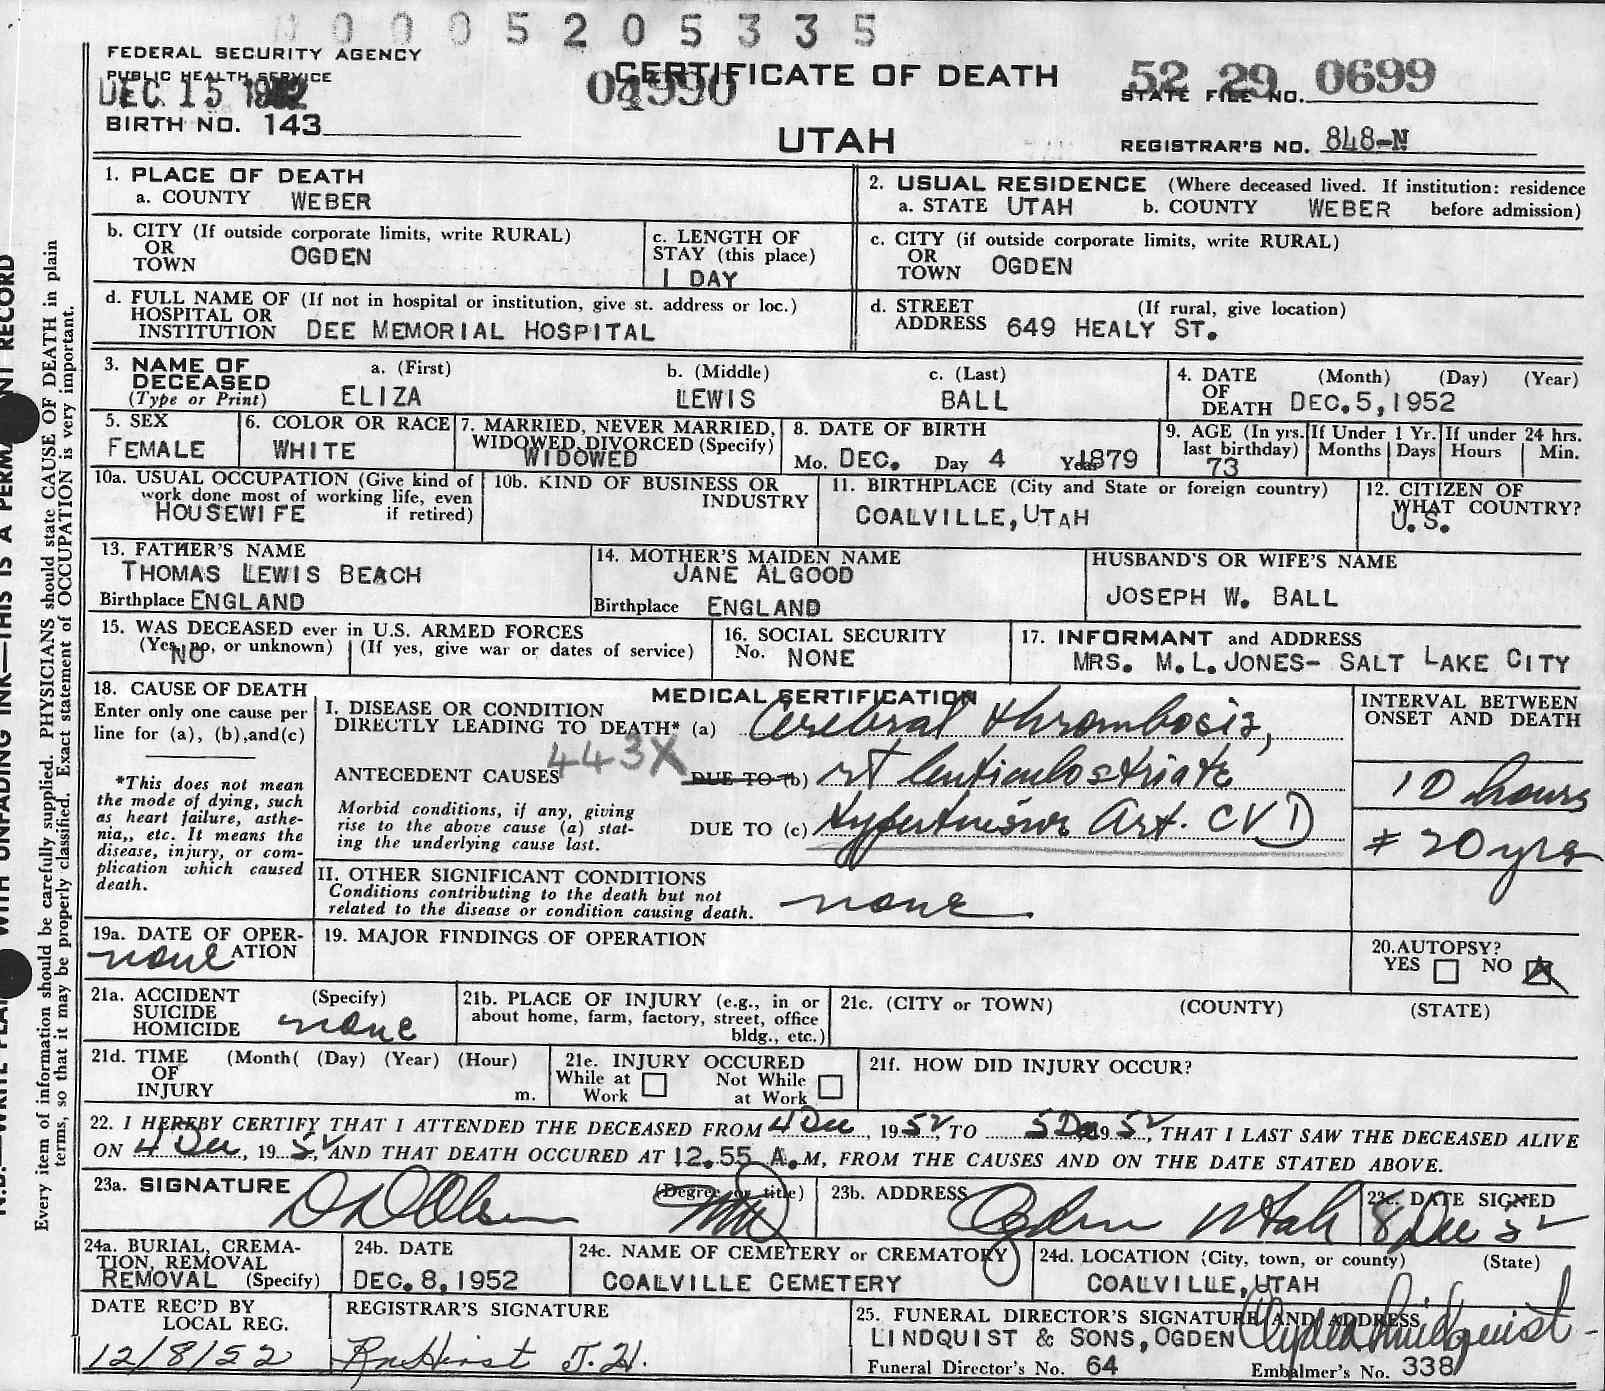 0 0 0 0 5 2 0 5 3 3 5
FEDERAL SECURITY AGENCY
PUBLIC HEALTH SERVICE
DEC 15 1952
BIRTH NO. 143
04990
CERTIFICATE OF DEATH
UTAH
52 29 0699
STATE FILE NO.
REGISTRAR'S NO. 848-N
1. PLACE OF DEATH
a. COUNTY WEBER
2. USUAL RESIDENCE (Where deceased lived. If institution: residence
a. STATE UTAH b. COUNTY WEBER before admission)
b. CITY (If outside corporate limits, write RURAL)
OR
TOWN OGDEN
c. LENGTH OF
STAY (this place)
1 DAY
c. CITY (if outside corporate limits, write RURAL)
OR
TOWN OGDEN
d. FULL NAME OF (If not in hospital or institution, give st. address or loc.)
HOSPITAL OR
INSTITUTION DEE MEMORIAL HOSPITAL
d. STREET (If rural, give location)
ADDRESS 649 HEALY ST.
3. NAME OF
DECEASED
(Type or Print)
a. (First)
ELIZA
b. (Middle)
LEWIS
c. (Last)
BALL
4. DATE (Month) (Day) (Year)
OF
DEATH DEC. 5, 1952
5. SEX
FEMALE
6. COLOR OR RACE
WHITE
7. MARRIED, NEVER MARRIED,
WIDOWED, DIVORCED (Specify)
WIDOWED
8. DATE OF BIRTH
Mo. DEC. Day 4 Year 1879
9. AGE (In yrs.
last birthday)
73
If Under 1 Yr.
Months Days
If under 24 hrs.
Hours Min.
10a. USUAL OCCUPATION (Give kind of
work done most of working life, even
HOUSEWIFE if retired)
10b. KIND OF BUSINESS OR
INDUSTRY
11. BIRTHPLACE (City and State or foreign country)
COALVILLE, UTAH
12. CITIZEN OF
WHAT COUNTRY?
U.S.
13. FATHER'S NAME
THOMAS LEWIS BEACH
Birthplace ENGLAND
14. MOTHER'S MAIDEN NAME
JANE ALGOOD
Birthplace ENGLAND
HUSBAND'S OR WIFE'S NAME
JOSEPH W. BALL
15. WAS DECEASED ever in U.S. ARMED FORCES
(Yes, no, or unknown) (If yes, give war or dates of service)
NO
16. SOCIAL SECURITY
No. NONE
17. INFORMANT and ADDRESS
MRS. M. L. JONES- SALT LAKE CITY
18. CAUSE OF DEATH
Enter only one cause per
line for (a), (b), and (c)
*This does not mean
the mode of dying, such
as heart failure, asthe-
nia,, etc. It means the
disease, injury, or com-
plication which caused
death.
MEDICAL CERTIFICATION
I. DISEASE OR CONDITION
DIRECTLY LEADING TO DEATH* (a) Cerebral thrombosis,
443X
ANTECEDENT CAUSES
DUE TO (b) rt lenticulostriate
Morbid conditions, if any, giving
rise to the above cause (a) stat-
ing the underlying cause last.
DUE TO (c) Hypertensive Art. CVD
INTERVAL BETWEEN
ONSET AND DEATH
10 hours
± 20 yrs
II. OTHER SIGNIFICANT CONDITIONS
Conditions contributing to the death but not
related to the disease or condition causing death.
none
19a. DATE OF OPER-
ATION
none
19. MAJOR FINDINGS OF OPERATION
20. AUTOPSY?
YES NO X
21a. ACCIDENT (Specify)
SUICIDE
HOMICIDE none
21b. PLACE OF INJURY (e.g., in or
about home, farm, factory, street, office
bldg., etc.)
21c. (CITY or TOWN) (COUNTY) (STATE)
21d. TIME (Month( (Day) (Year) (Hour)
OF
INJURY m.
21e. INJURY OCCURED
While at Work Not While at Work
21f. HOW DID INJURY OCCUR?
22. I HEREBY CERTIFY THAT I ATTENDED THE DECEASED FROM 4 Dec, 1952, TO 5 Dec 1952, THAT I LAST SAW THE DECEASED ALIVE
ON 4 Dec, 1952, AND THAT DEATH OCCURED AT 12.55 A.M, FROM THE CAUSES AND ON THE DATE STATED ABOVE.
23a. SIGNATURE (Degree or title)
23b. ADDRESS
Ogden Utah
23c. DATE SIGNED
8 Dec 52
24a. BURIAL, CREMA-
TION, REMOVAL
REMOVAL (Specify)
24b. DATE
DEC. 8, 1952
24c. NAME OF CEMETERY OR CREMATORY
COALVILLE CEMETERY
24d. LOCATION (City, town, or county) (State)
COALVILLE, UTAH
DATE REC'D BY
LOCAL REG.
12/8/52
REGISTRAR'S SIGNATURE
25. FUNERAL DIRECTOR'S SIGNATURE AND ADDRESS
LINDQUIST & SONS, OGDEN
Funeral Director's No. 64 Embalmer's No. 338
Every item of information should be carefully supplied. PHYSICIANS should state CAUSE OF DEATH in plain
terms, so that it may be properly classified. Exact statement of OCCUPATION is very important.